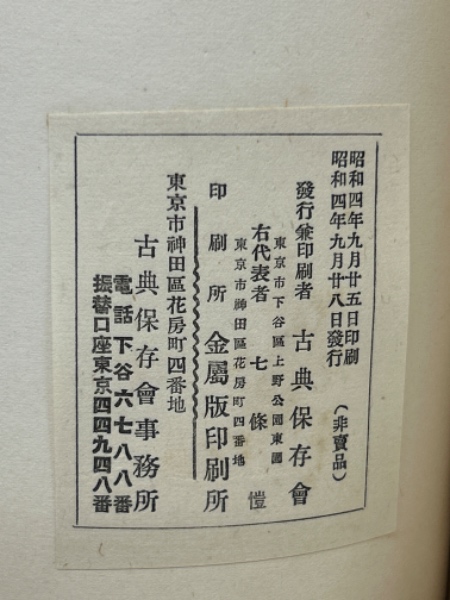 昭和四年九月廿五日印刷
昭和四年九月廿八日發行
(非賣品)
發行兼印刷者 古典保存會
東京市下谷區上野公園東園
右代表者 七條愷
東京市神田區花房町四番地
印刷所 金屬版印刷所
東京市神田區花房町四番地
古典保存會事務所
電話下谷六七八八番
振替口座東京四四九四八番